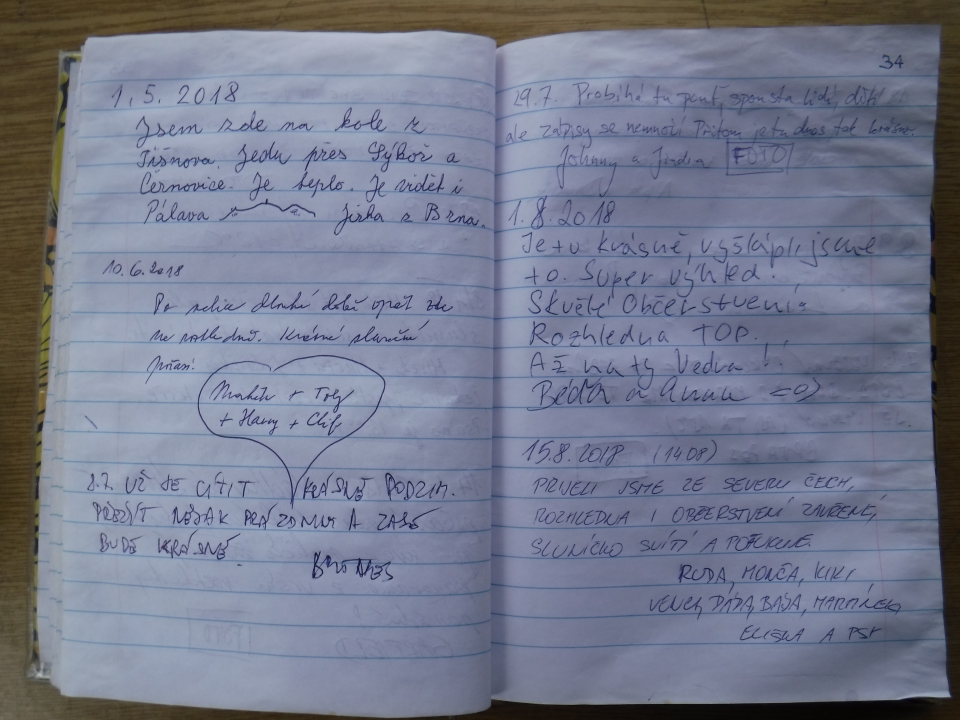 1. 5. 2018
Jsem zde na kole z
Tišnova. Jedu přes Sýkoř a
Černovice. Je teplo. Je vidět i
Pálava Jirka z Brna.
10.6.2018
Po velice dlouhé době opět zde
na rozhledně. Krásné sluneční
počasí!
+ Toby
+ Harry + Clif
8.7. UŽ JE CÍTIT KRÁSNĚ PODZIM.
PŘEŽÍT NĚJAK PRÁZDNINY A ZASE
BUDE KRÁSNĚ.
34
29.7. Probíhá tu pouť, spousta lidí, dětí
ale zápisy se nemnoží Přitom je tu dnes tak krásně.
Johnny a Jindra FOTO
1.8.2018
Je tu krásně, vyšlápli jsme
to. Super výhled!
Skvělé Občerstvení.
Rozhledna TOP...
Až na ty Vedra!
Béďa a Anna =o)
15.8.2018 (14.08)
PŘIJELI JSME ZE SEVERU ČECH,
ROZHLEDNA I OBČERSTVENÍ ZAVŘENÉ,
SLUNÍČKO SVÍTÍ A POFUKUJE.
RUDA, MONČA, KIKI,
DÁDA, BÁJA,
ELIŠKA A PSI